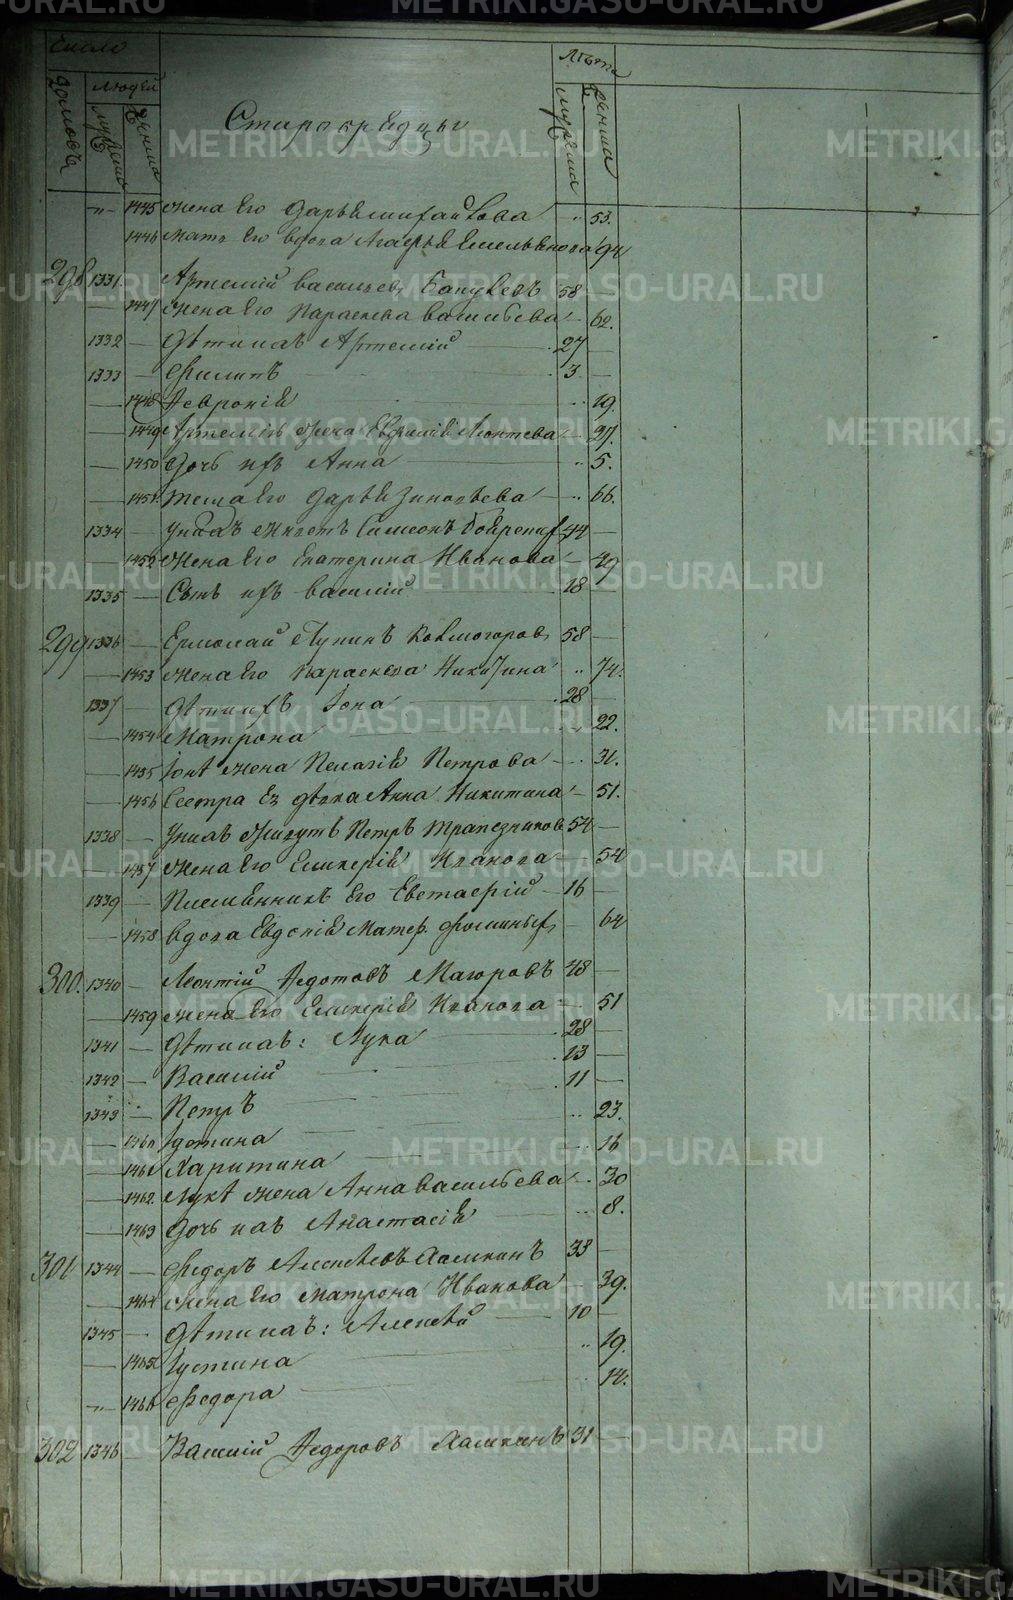 Число
Домовъ
Людей
Мужеска
Женска
Старообрядцы
Лѣта
мужеска
женска
" 1445 жена Его Дарья Михайлова " 53.
1446 Мать Его вдова Агафья Емельянова 94
298 1331. Артемій Васильевъ 58 —
— 1447 Жена Его Параскева Васильева — 62.
1332 — Дѣти ихъ Артемій 27 —
1333 — Филипъ 3 —
— 1448 Февронія " 19.
— 1449 Артемія жена Евгенія Леонтьева — 27.
— 1450 Дочь ихъ Анна " 5.
— 1451. Теща Его Дарья Зиновьева — " 66.
1334 — У нихъ живетъ Симеонъ 44 —
— 1452 Жена Его Екатерина Иванова — 49
1335 — Сынъ ихъ Василій 18 —
299 1336 — Ермолай Лупинъ Ковмогоровъ 58 —
— 1453 Жена Его Параскева Никитина " 74.
1337 — Дѣти ихъ Іона 28 —
— 1454 Матрона " 22.
— 1455 Іонѣ жена Пелагія Петрова — " 31.
— 1456 Сестра Ея дѣвка Анна Никитина — 51.
1338 — У нихъ живутъ Петръ Трапезниковъ 54 —
— 1457 Жена Его Гликерія Иванова — 54
1339 — Племянникъ Его Евстафій — 16 —
— 1458 Вдова Евдокія Матф. Фоминыхъ — 64
300. 1340 — Леонтій Федотовъ Магоровъ 48 —
— 1459 Жена Его Гликерія Иванова — 51
1341 — Дѣти ихъ: Лука 28 —
1342 — Василій 13 —
1343 — Петръ 11 —
— 1460 Іустина " 23.
— 1461 Харитина " 16
— 1462. Лукѣ жена Анна Васильева — 30
— 1463 Дочь ихъ Анастасія " 8.
301 1344 — Федоръ Алексѣевъ Халкинъ 38 —
— 1464 Жена Его Матрона Иванова — 39.
1345 — Дѣти ихъ: Алексѣй — 10 —
— 1465 Іустина " 19.
" 1466 Федора " 14.
302 1346 — Василій Федоровъ Халкинъ 31 —
METRIKI.GASO-URAL.RU